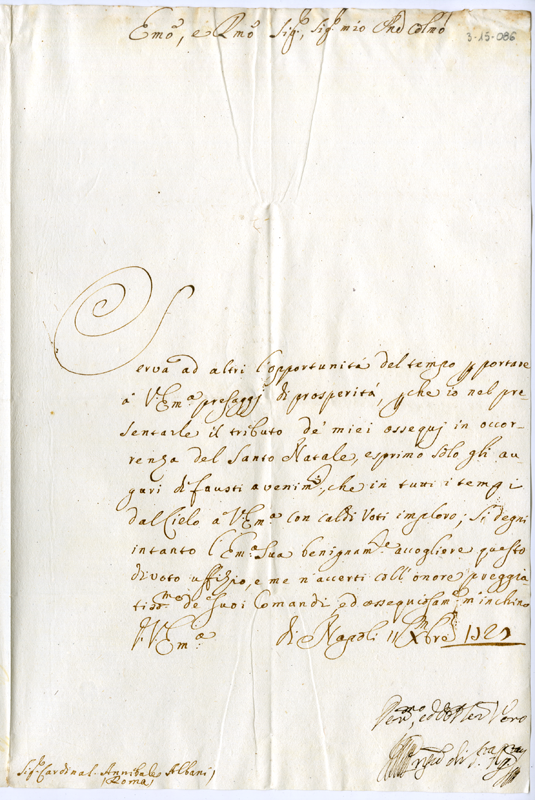 Emo, e Rmo Sig.r, Sig.r mio Pne Colmo
3-15-086
Serva ad altri l'opportunità del tempo p portare
à V.Em.a presaggj di prosperità, pche io nel pre-
sentarle il tributo de' miei ossequj in occor-
renza del Santo Natale, esprimo solo gli au-
guri di fausti avenim.ti, che in tutti i tempi
dal Cielo à V.Em.a con caldi Voti imploro; Si degni
intanto l'Em.a Sua benignam.te accogliere questo
divoto uffizio, e me n'accerti coll'onore preggia
tiss.mo de' Suoi Comandi, ed ossequiosam.te m'inchino
D. V.Em.a di Napoli 11 Xbre
Sig.r Cardinal Annibale Albani
(Roma)